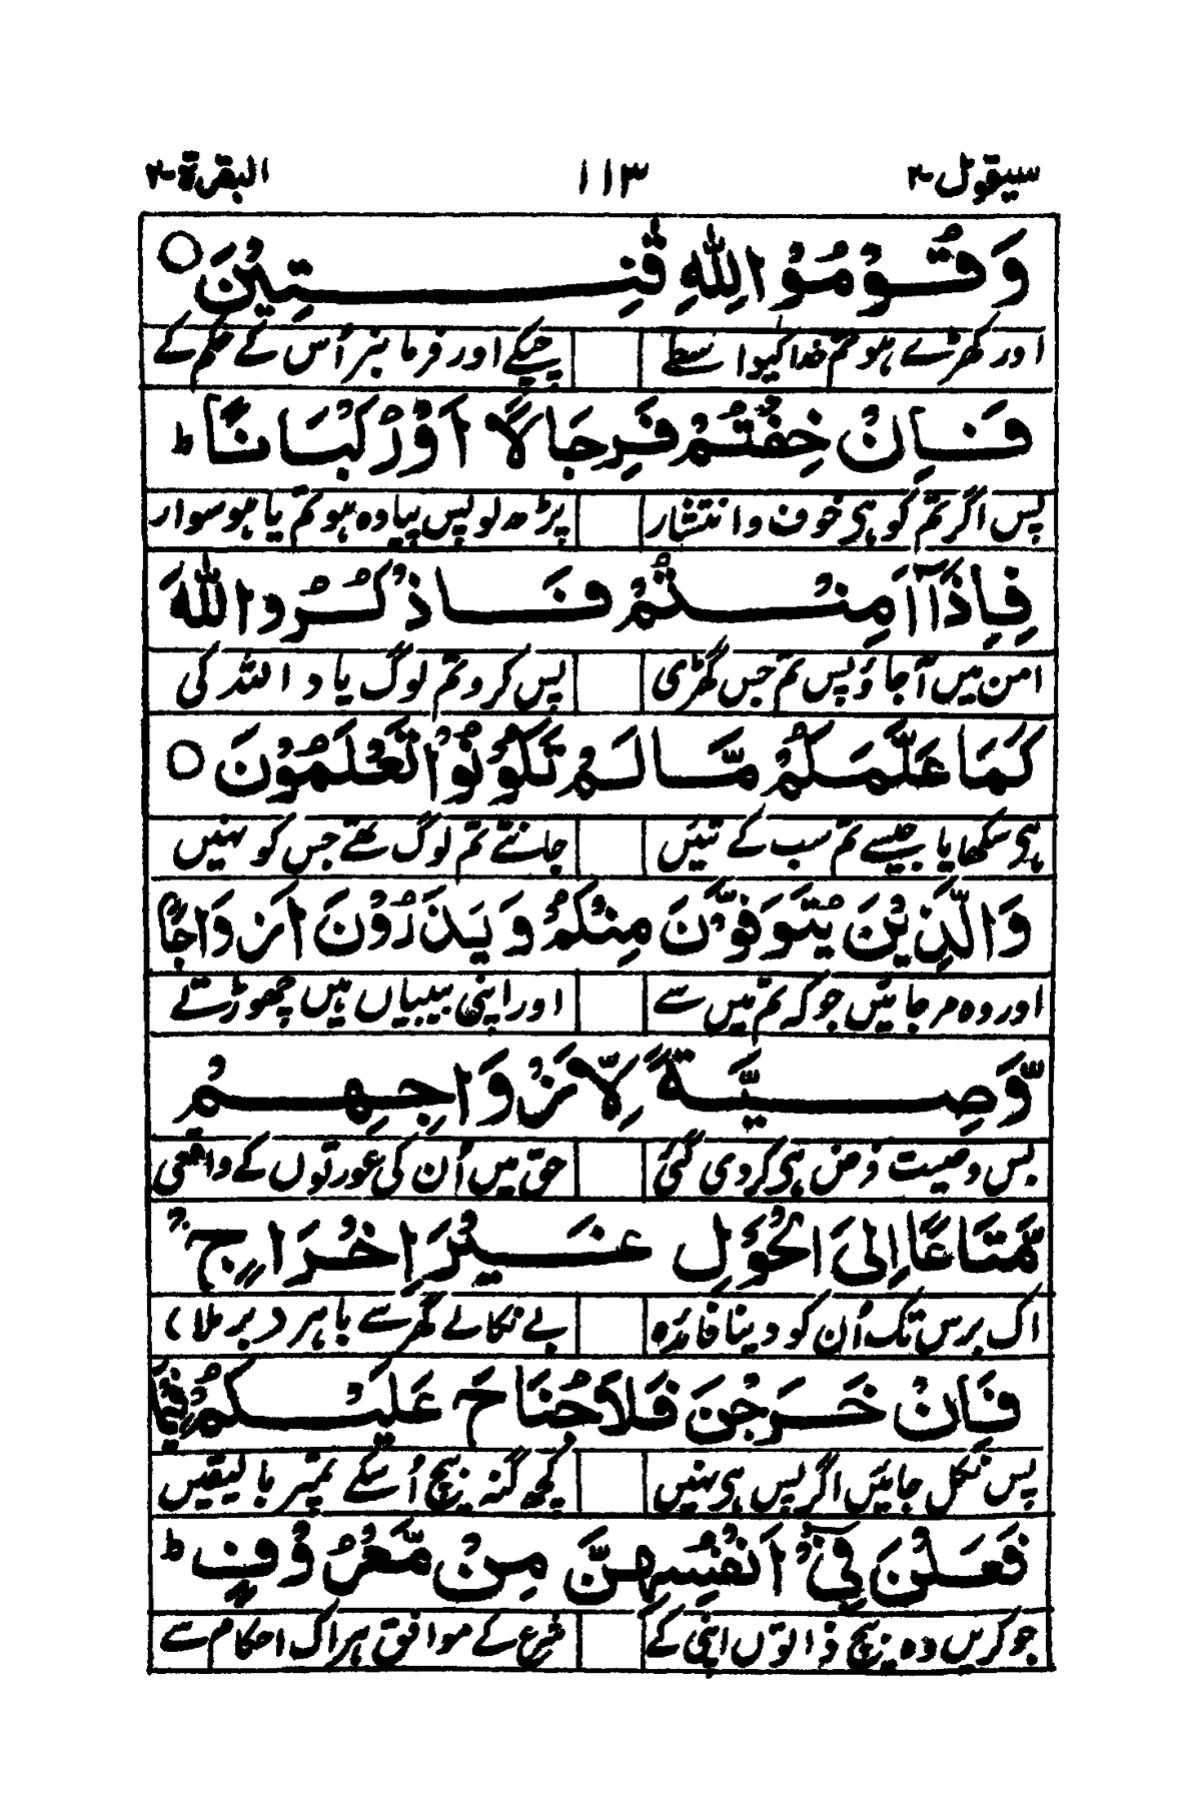 سیقول-۲ ۱۱۳ البقرة-۲
وَقُوْمُوْا لِلّٰهِ قٰنِتِيْنَ ○
اور کھڑے ہو تم خدا کیواسطے چپکے اور فرمانبر اُس کے حکم کے
فَاِنْ خِفْتُمْ فَرِجَالًا اَوْ رُكْبَانًا ؕ
پس اگر تم کو ہی خوف و انتشار پڑھ لو پس پیادہ ہو تم یا ہو سوار
فَاِذَآ اَمِنْتُمْ فَاذْكُرُوا اللّٰهَ
امن میں آجاؤ پس تم جس گھڑی پس کرو تم لوگ یاد اللہ کی
كَمَا عَلَّمَكُمْ مَّا لَمْ تَكُوْنُوْا تَعْلَمُوْنَ ○
ہی سکھایا جیسے تم سب کے تئیں جانتے تم لوگ تھے جس کو نہیں
وَالَّذِيْنَ يُتَوَفَّوْنَ مِنْكُمْ وَيَذَرُوْنَ اَزْوَاجًا
اور وہ مر جائیں جو کہ تم میں سے اور اپنی بیبیاں ہیں چھوڑتے
وَّصِيَّةً لِّاَزْوَاجِهِمْ
بس وصیت فرض ہی کر دی گئی حق میں اُن کی عورتوں کے واقعی
مَّتَاعًا اِلَى الْحَوْلِ غَيْرَ اِخْرَاجٍ ۚ
اک برس تک اُن کو دینا فائدہ بے نکالے گھر سے باہر (برملا)
فَاِنْ خَرَجْنَ فَلَا جُنَاحَ عَلَيْكُمْ فِيْمَا
پس نکل جائیں اگر پس ہی نہیں کچھ گنہ بیچ اُسکے تمپر بالیقیں
فَعَلْنَ فِيْٓ اَنْفُسِهِنَّ مِنْ مَّعْرُوْفٍ ؕ
جو کریں وہ بیچ ذاتوں اپنی کے شرع کے موافق ہر اک احکام سے